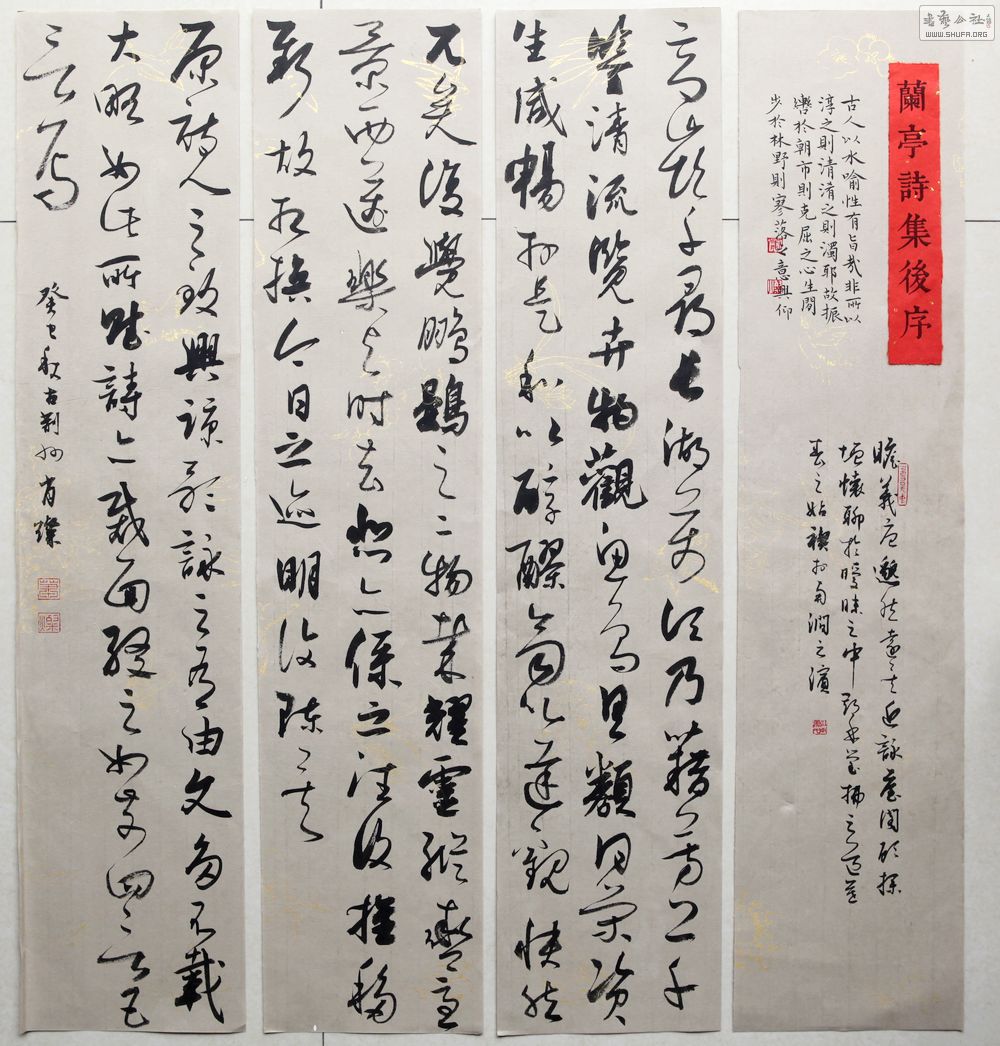 書藝公社
WWW.SHUFA.ORG
蘭亭詩集後序
古人以水喻性有旨哉非所以
淳之則清淆之則濁耶故振
轡於朝市則充屈之心生閒
步於林野則寥落之意興仰
瞻羲唐邈然遠矣近詠臺閣顧探
增懷聊於曖昧之中期乎瑩拂之道暮
春之始禊於南澗之濱
高嶺千尋長湖万頃乃藉芳草
鑒清流覽卉物觀魚鳥具類同榮資
生咸暢於是和以醇醪齊以達觀快然
兀矣復覺鵬鷃之二物哉耀靈縱轡急
景西邁樂與時去悲亦係之往復推移
新故相換今日之迹明復陳矣
原詩人之致興諒歌詠之有由文多不載
大略如此所賦詩亦裁而綴之如前四言五
言焉
癸巳秋古荊州肖璨